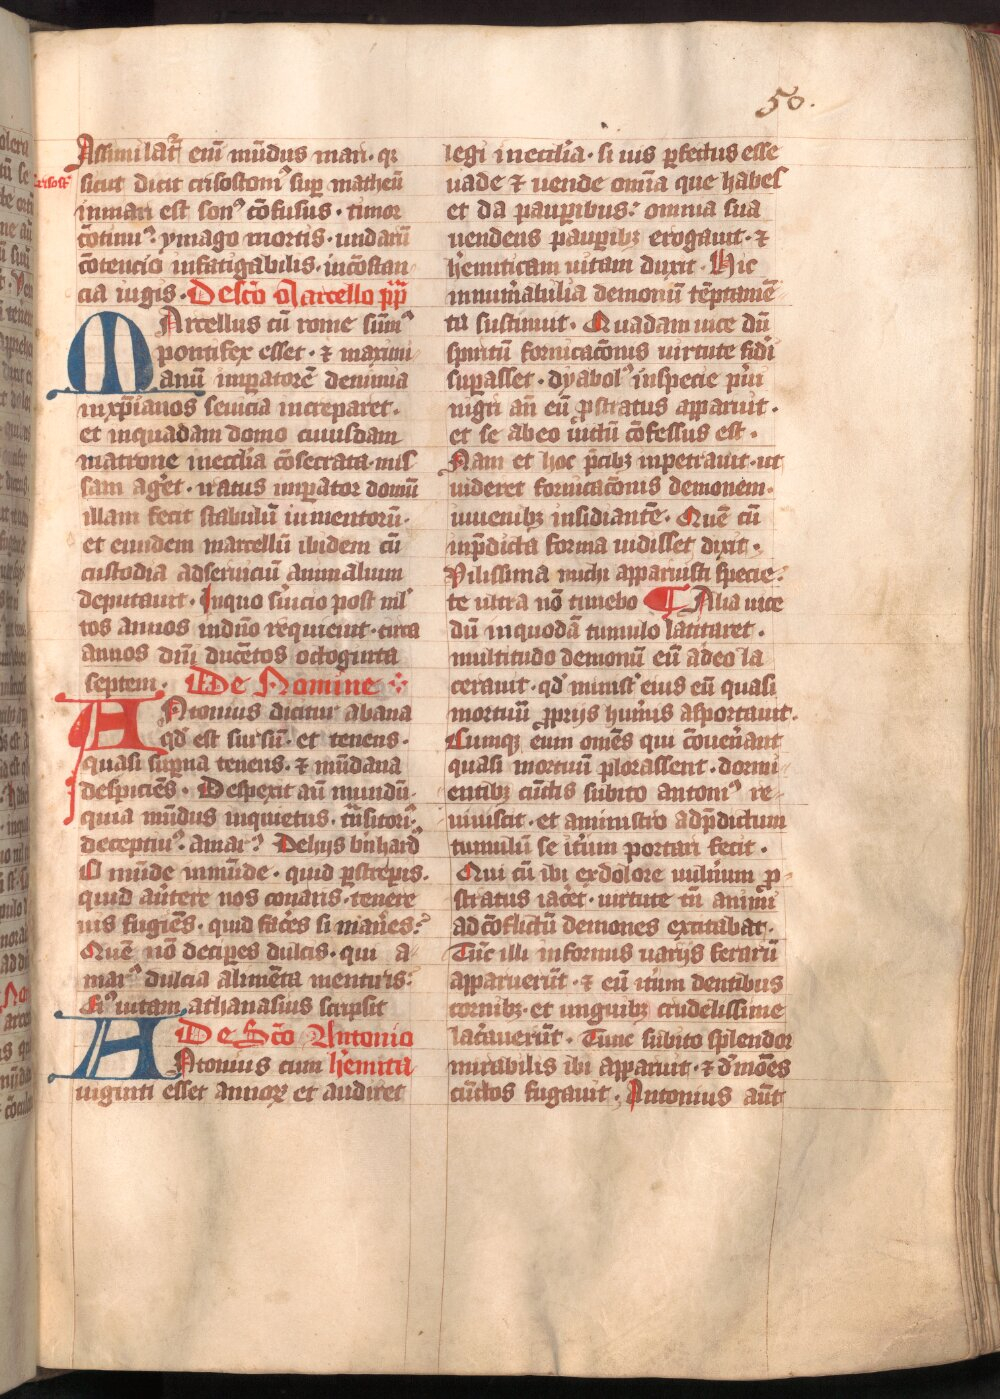 50.
Assimilat᷑ eni᷑ mūdus mari· qꝛ
crisost᷑
sicut dicit crisostomꝰ sup̱ matheū
inmari est sonꝰ cōfusus· timor
cōtinuꝰ· ymago mortis· undarū
cōtencio infatigabilis· incōstan
cia iugis· De sc̄o Marcello pp̄
MArcellus cū rome sūmꝰ
pontifex esset· ⁊ maximi
anū imp̱atorē de nimia
inxp̄ianos seuicia increparet·
et inquadam domo cuiusdam
matrone inecclīa cōsecrata· mis
sam ag̾et· iratus imp̱ator domū
illam fecit stabulū iumentorū·
et eundem marcellū ibidem cū
custodia adseruiciū animalium
deputauit· Inquo s̾uicio post ml̾
tos annos indn̄o requieuit· circa
annos dn̄i ducētos octoginta
septem· De Nomine
ANtonius dicitur abana
qd̾ est sursū· et tenens·
quasi sup̱na tenens· ⁊ mūdana
despiciēs· Despexit aū mundū·
quia mūdus inquietus· trāsitoriꝰ·
deceptiuꝰ· amarꝰ· Dehijs b̾nhardꝰ
O mūde inmūde· quid p̱strepis·
quid au̾tere nos conaris· tenere
uis fugiēs· quid fac̾es si man̾es?
Quē nō decip̱es dulcis· qui a
marꝰ dulcia alimēta mentiris?
Eiꝰ uitam athanasius scripsit
De Sc̄o Antonio
ANtonius cum h̾emita
uiginti esset annoꝝ et audiret
legi inecclīa· si uis p̱fectus esse
uade ⁊ uende om̄ia que habes
et da paup̱ibus: omnia sua
uendens paup̱ibꝫ erogauit· ⁊
h̾emiticam uitam duxit· Hic
innum̾abilia demonū tēptamē
ta sustinuit· Quadam uice dū
spiritū fornicacōnis uirtute fidei
sup̱asset· dyabolꝰ inspecie pūi
nigri an̄ eū ꝓstratus apparuit·
et se abeo uictū cōfessus est·
Nam et hoc p̄cibꝫ inpetrauit· ut
uideret fornicacōnis demonem·
iuuenibꝫ insidiantē· Quē cū
inp̄dicta forma uidisset dixit·
Vilissima michi apparuisti specie·
te ultra nō timebo ¶ Alia uice
dū inquodā tumulo latitaret·
multitudo demonū eū adeo la
cerauit· qd̾ minist᷑ eius eū quasi
mortuū ꝓprijs hum̾is asportauit·
Cumqꝫ eum om̄es qui cōuen̾ant
quasi mortuū plorassent· dormi
entibꝫ cūctis subito antoniꝰ re
uiuiscit· et aministro adp̄dictum
tumulū se it̾um portari fecit·
Qui cū ibi exdolore uuln̾um ꝓ
stratus iac̾et· uirtute tn̄ animi
adcōflictū demones excitabat·
Tūc illi informis uarijs ferarū
apparuerūt· ⁊ eū it̾um dentibus
cornibꝫ· et unguibꝫ crudelissime
lac̾auerūt· Tunc subito splendor
mirabilis ibi apparuit· ⁊ d̾mōes
cūctos fugauit· Antonius aūt